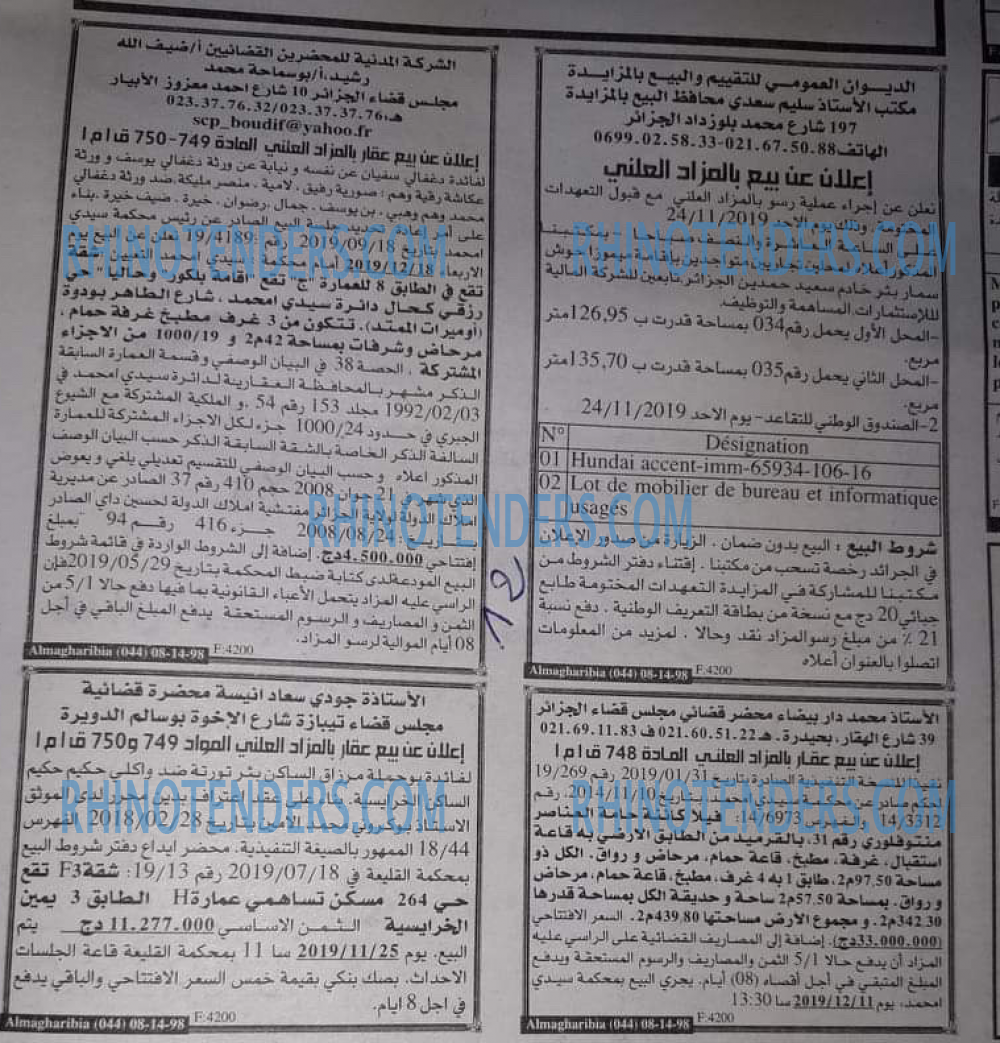 الشركة المدنية للمحضرين القضائيين أ/ضيف الله
رشيد.أ/بوسماحة محمد
مجلس قضاء الجزائر 10 شارع احمد معزوز الأبيار
هـ:023.37.76.32/023.37.37.76
scp_boudif@yahoo.fr
إعلان عن بيع عقار بالمزاد العلني المادة 749-750 ق ا م ا
لفائدة دغفالي سفيان عن نفسه و نيابة عن ورثة دغفالي يوسف و ورثة
عكاشة رقية وهم : صورية رفيق ، لامية . منصر مليكة.ضد ورثة دغفالي
محمد وهم وهبي ، بن يوسف . جمال .رضوان . خيرة . ضيف خيرة .بناء
على أمر إعادة تجديد جلسة البيع الصادر عن رئيس محكمة سيدي
امحمد بتاريخ 2019/09/18 رقم 19/4189
الاربعاء 2019/12/18 محكمة سيدي امحمد التعيين: شقة
تقع في الطابق 8 للعمارة "ج" تقع "اقامة بلكور" حاليا "حي
رزقي كحال دائرة سيدي امحمد ، شارع الطاهر بودوة
(أوميرات الممتد). تتكون من 3 غرف مطبخ غرفة حمام ،
مرحاض وشرفات بمساحة 42م2 و 1000/19 من الاجزاء
المشتركة ، الحصة 38 في البيان الوصفي وقسمة العمارة السابقة
الذكر مشهر بالمحافظة العقارية لدائرة سيدي امحمد في
1992/02/03 مجلد 153 رقم 54 .و الملكية المشتركة مع الشيوع
الجبري في حدود 1000/24 جزء لكل الاجزاء المشتركة للعمارة
السالفة الذكر الخاصة بالشقة السابقة الذكر حسب البيان الوصف
المذكور اعلاه و حسب البيان الوصفي للتقسيم تعديلي يلغي و يعوض
21 2008 حجم 410 رقم 37 الصادر عن مديرية
املاك الدولة لولاية الجزائر مفتشية املاك الدولة لحسين داي الصادر
2008/08/24 جزء 416 رقم 94 بمبلغ
إفتتاحي 4.500.000دج. إضافة إلى الشروط الواردة في قائمة شروط
البيع المودعة لدى كتابة ضبط المحكمة بتاريخ 2019/05/29 فإن
الراسي عليه المزاد يتحمل الأعباء القانونية بما فيها دفع حالا 5/1 من
الثمن و المصاريف و الرسوم المستحقة يدفع المبلغ الباقي في أجل
08 أيام الموالية لرسو المزاد.
Almagharibia (044) 08-14-98 F:4200
الديوان العمومي للتقييم والبيع بالمزايدة
مكتب الأستاذ سليم سعدي محافظ البيع بالمزايدة
197 شارع محمد بلوزداد الجزائر
الهاتف021.67.50.88-0699.02.58.33
إعلان عن بيع بالمزاد العلني
نعلن عن إجراء عملية رسو بالمزاد العلني مع قبول التعهدات
وذلك يوم الاحد 24/11/2019
الساعة العاشرة والنصف صباحا بمكتبنا
المذكور أعلاه محلين تجاريين متواجدين بإقامة ميموزا حوش
سمار بئر خادم سعيد حمدين الجزائر.تابعين للشركة المالية
للإستثمارات المساهمة والتوظيف.
-المحل الأول يحمل رقم034 بمساحة قدرت ب 126,95متر
مربع.
-المحل الثاني يحمل رقم035 بمساحة قدرت ب 135,70متر
مربع.
2-الصندوق الوطني للتقاعد- يوم الاحد 24/11/2019
N° Désignation
01 Hundai accent-imm-65934-106-16
02 Lot de mobilier de bureau et informatique
usagés
شروط البيع : البيع بدون ضمان . الزيارة من صدور الإعلان
في الجرائد رخصة تسحب من مكتبنا . إقتناء دفتر الشروط من
مكتبنا للمشاركة في المزايدة التعهدات المختومة طابع
جبائي20 دج مع نسخة من بطاقة التعريف الوطنية . دفع نسبة
21 ٪ من مبلغ رسوالمزاد نقد وحالا . لمزيد من المعلومات
اتصلوا بالعنوان أعلاه
Almagharibia (044) 08-14-98 F:4200
12
الأستاذة جودي سعاد انيسة محضرة قضائية
مجلس قضاء تيبازة شارع الاخوة بوسالم الدويرة
إعلان عن بيع عقار بالمزاد العلني المواد 749 و750 ق ا م ا
لفائدة بوحملة مرزاق الساكن بئر توتة ضد واكلي حكيم حكيم
الساكن الخرايسية. بناء على عقد اعتراف بدين محرر لدى الموثق
الاستاذ بوكروني محمد الامين بتاريخ 2018/02/28 الفهرس
18/44 الممهور بالصيغة التنفيذية. محضر ايداع دفتر شروط البيع
بمحكمة القليعة في 2019/07/18 رقم 19/13: شقةF3 تقع
حي 264 مسكن تساهمي عمارةH الطابق 3 يمين
الخرايسية الثمن الاساسي 11.277.000 دج يتم
البيع. يوم 2019/11/25 سا 11 بمحكمة القليعة قاعة الجلسات
الاحداث. بصك بنكي بقيمة خمس السعر الافتتاحي والباقي يدفع
في اجل 8 ايام.
Almagharibia (044) 08-14-98 F:4200
الأستاذ محمد دار بيضاء محضر قضائي مجلس قضاء الجزائر
39 شارع الهقار، بحيدرة. هـ 021.60.51.22 ف 021.69.11.83
إعلان عن بيع عقار بالمزاد العلني المادة 748 ق ا م ا
تنفيذا للنسخة التنفيذية الصادرة بتاريخ 2019/01/31 رقم 19/269
لحكم صادر عن محكمة سيدي امحمد بتاريخ 2014/11/10. رقم
14/3312 والفهرس 14/6973: فيلا كائنة حامة العناصر
منتوفلوري رقم 31، بالقرميد من الطابق الأرضي به قاعة
استقبال، غرفة، مطبخ، قاعة حمام، مرحاض و رواق. الكل ذو
مساحة 97.50م2، طابق 1 به 4 غرف، مطبخ، قاعة حمام، مرحاض
و رواق، بمساحة 57.50م2 ساحة و حديقة الكل بمساحة قدرها
342.30م2. و مجموع الأرض مساحتها 439.80م2. السعر الافتتاحي
(33.000.000دج). إضافة إلى المصاريف القضائية على الراسي عليه
المزاد أن يدفع حالا 5/1 الثمن والمصاريف والرسوم المستحقة ويدفع
المبلغ المتبقي في أجل أقصاه (08) أيام. يجري البيع بمحكمة سيدي
امحمد، يوم 2019/12/11 سا 13:30
Almagharibia (044) 08-14-98 F:4200
RHINOTENDERS.COM
RHINOTENDERS.COM
RHINOTENDERS.COM
RHINOTENDERS.COM
RHINOTENDERS.COM